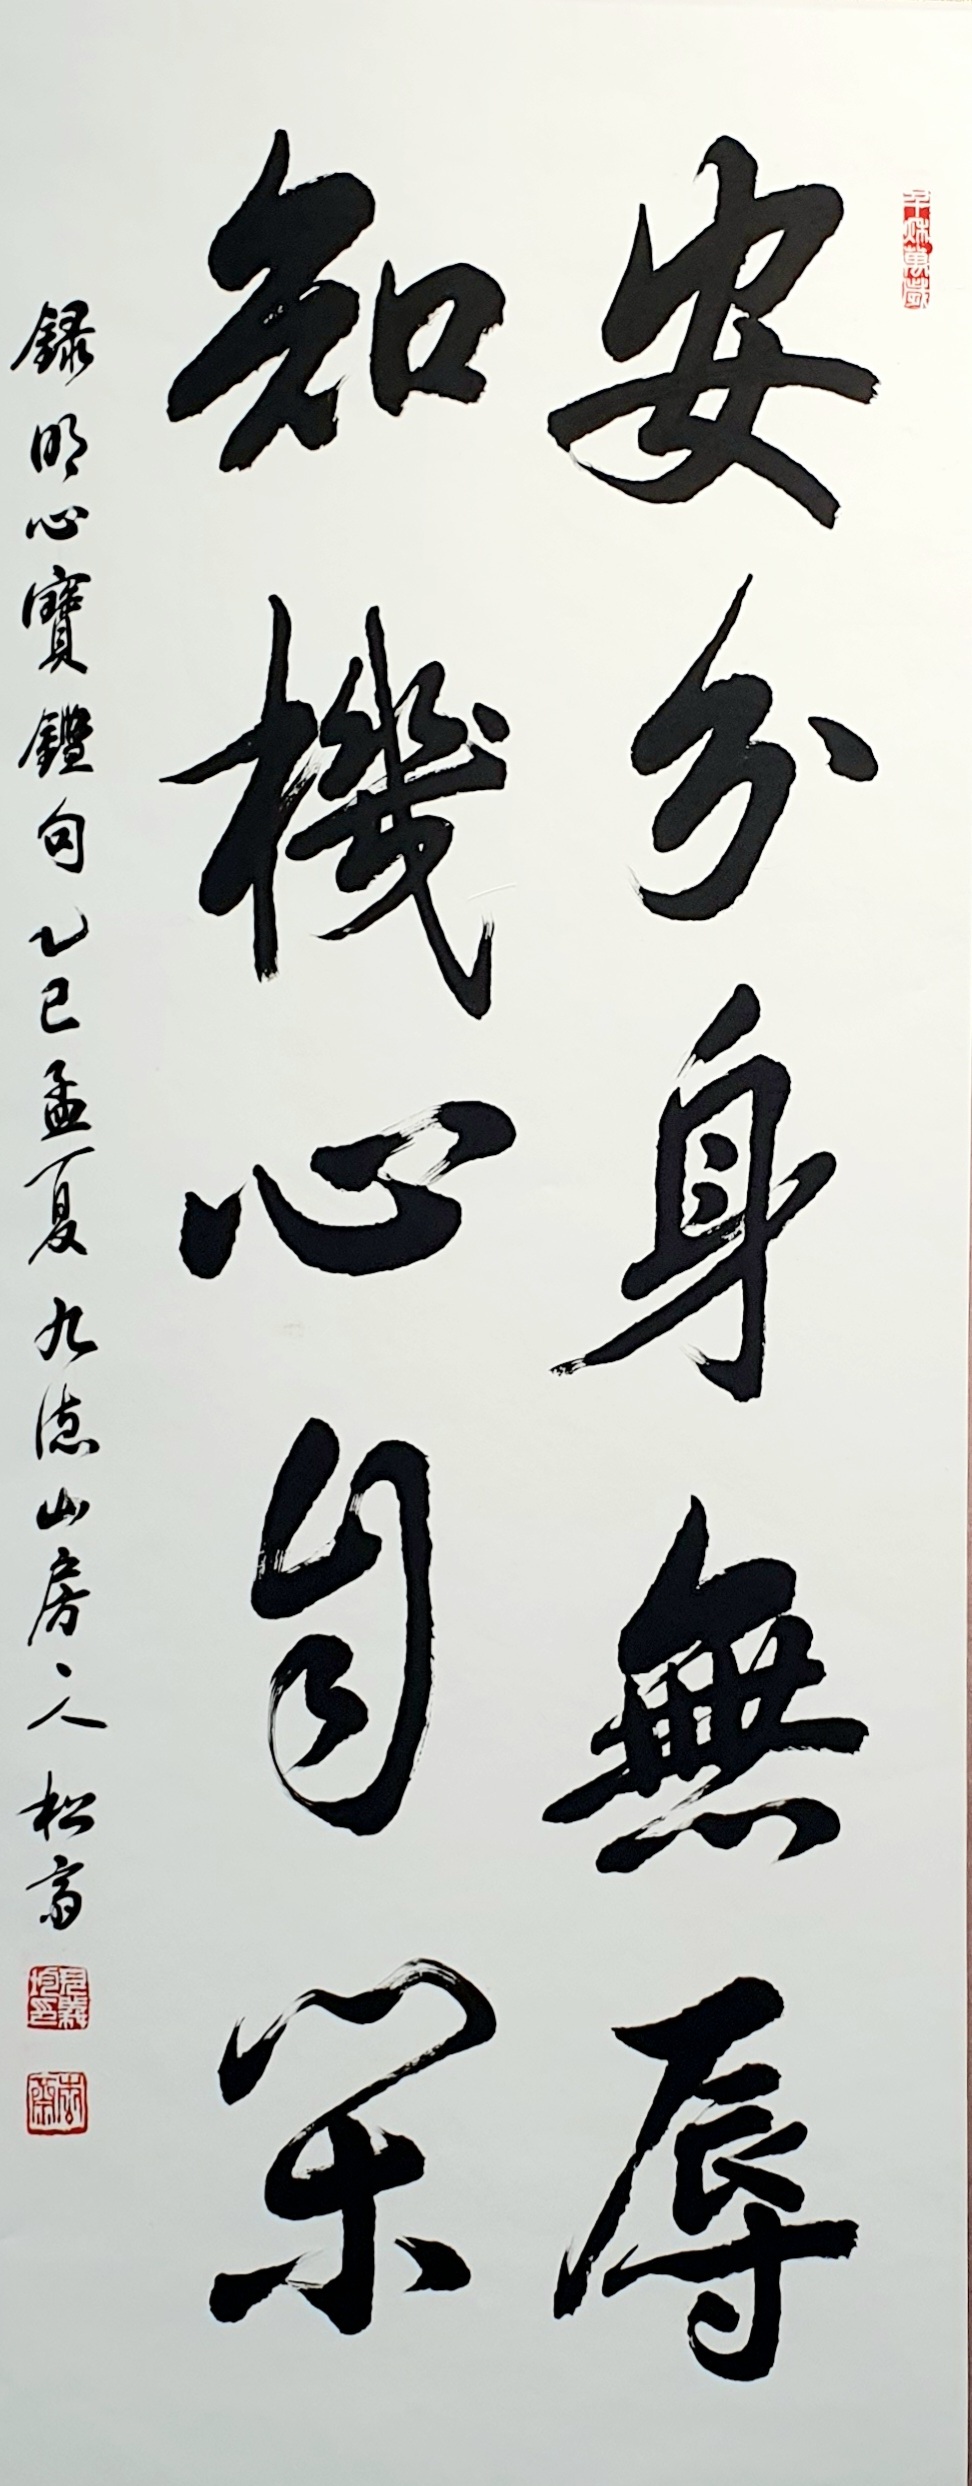 安分身無辱
知機心自閑
録明心寶鑑句 乙巳孟夏 九德山房、人 松斎
千秋萬歲